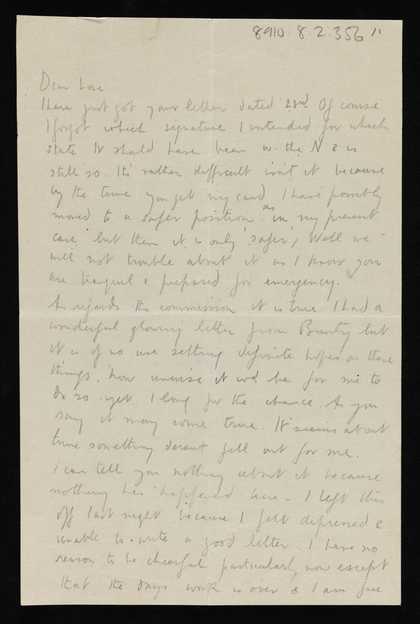 8910. 8. 2. 356 11
Dear Love
I have just got your letter dated 22nd Of course
I forgot which signature I intended for which
state It should have been w. the N 2 is
still so. It's rather difficult isn't it because
by the time you get my card, I have possibly
moved to a safer position as in my present
case, but then it is only 'safer', Well we
will not trouble about it as I know you
are tranquil & prepared for emergency.
As regards the commission it is true I had a
wonderful glowing letter from but
it is of no use setting definite hopes on these
things, how unwise it wd be for me to
do so. yet I long for the chance. As you
say it may come true. It seems about
time something doesn't fall out for me.
I can tell you nothing about it because
nothing has happened here - I left this
off last night because I felt depressed &
unable to write a good letter. I have no
reason to be cheerful particularly now except
that the days work is over & I am free